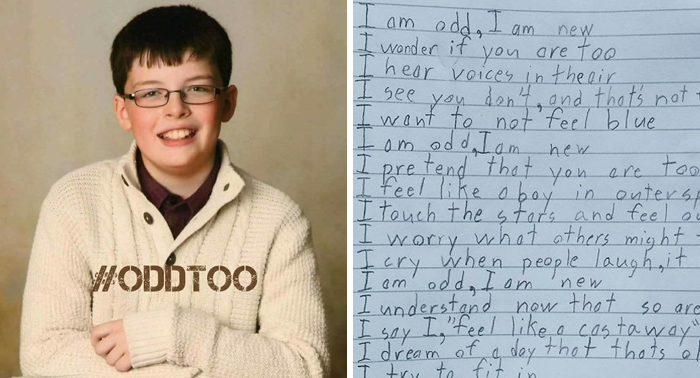 #ODDTOO
I am odd, I am new
I wonder if you are too
I hear voices in the air
I see you don't, and that's not
I want to not feel blue
I am odd, I am new
I pretend that you are too
I feel like a boy in outersp
I touch the stars and feel
I worry what others might
I cry when people laugh, it
I am odd, I am new
I understand now that so are
I say I, "feel like a castaway"
I dream of a day that thats
I try to fit in